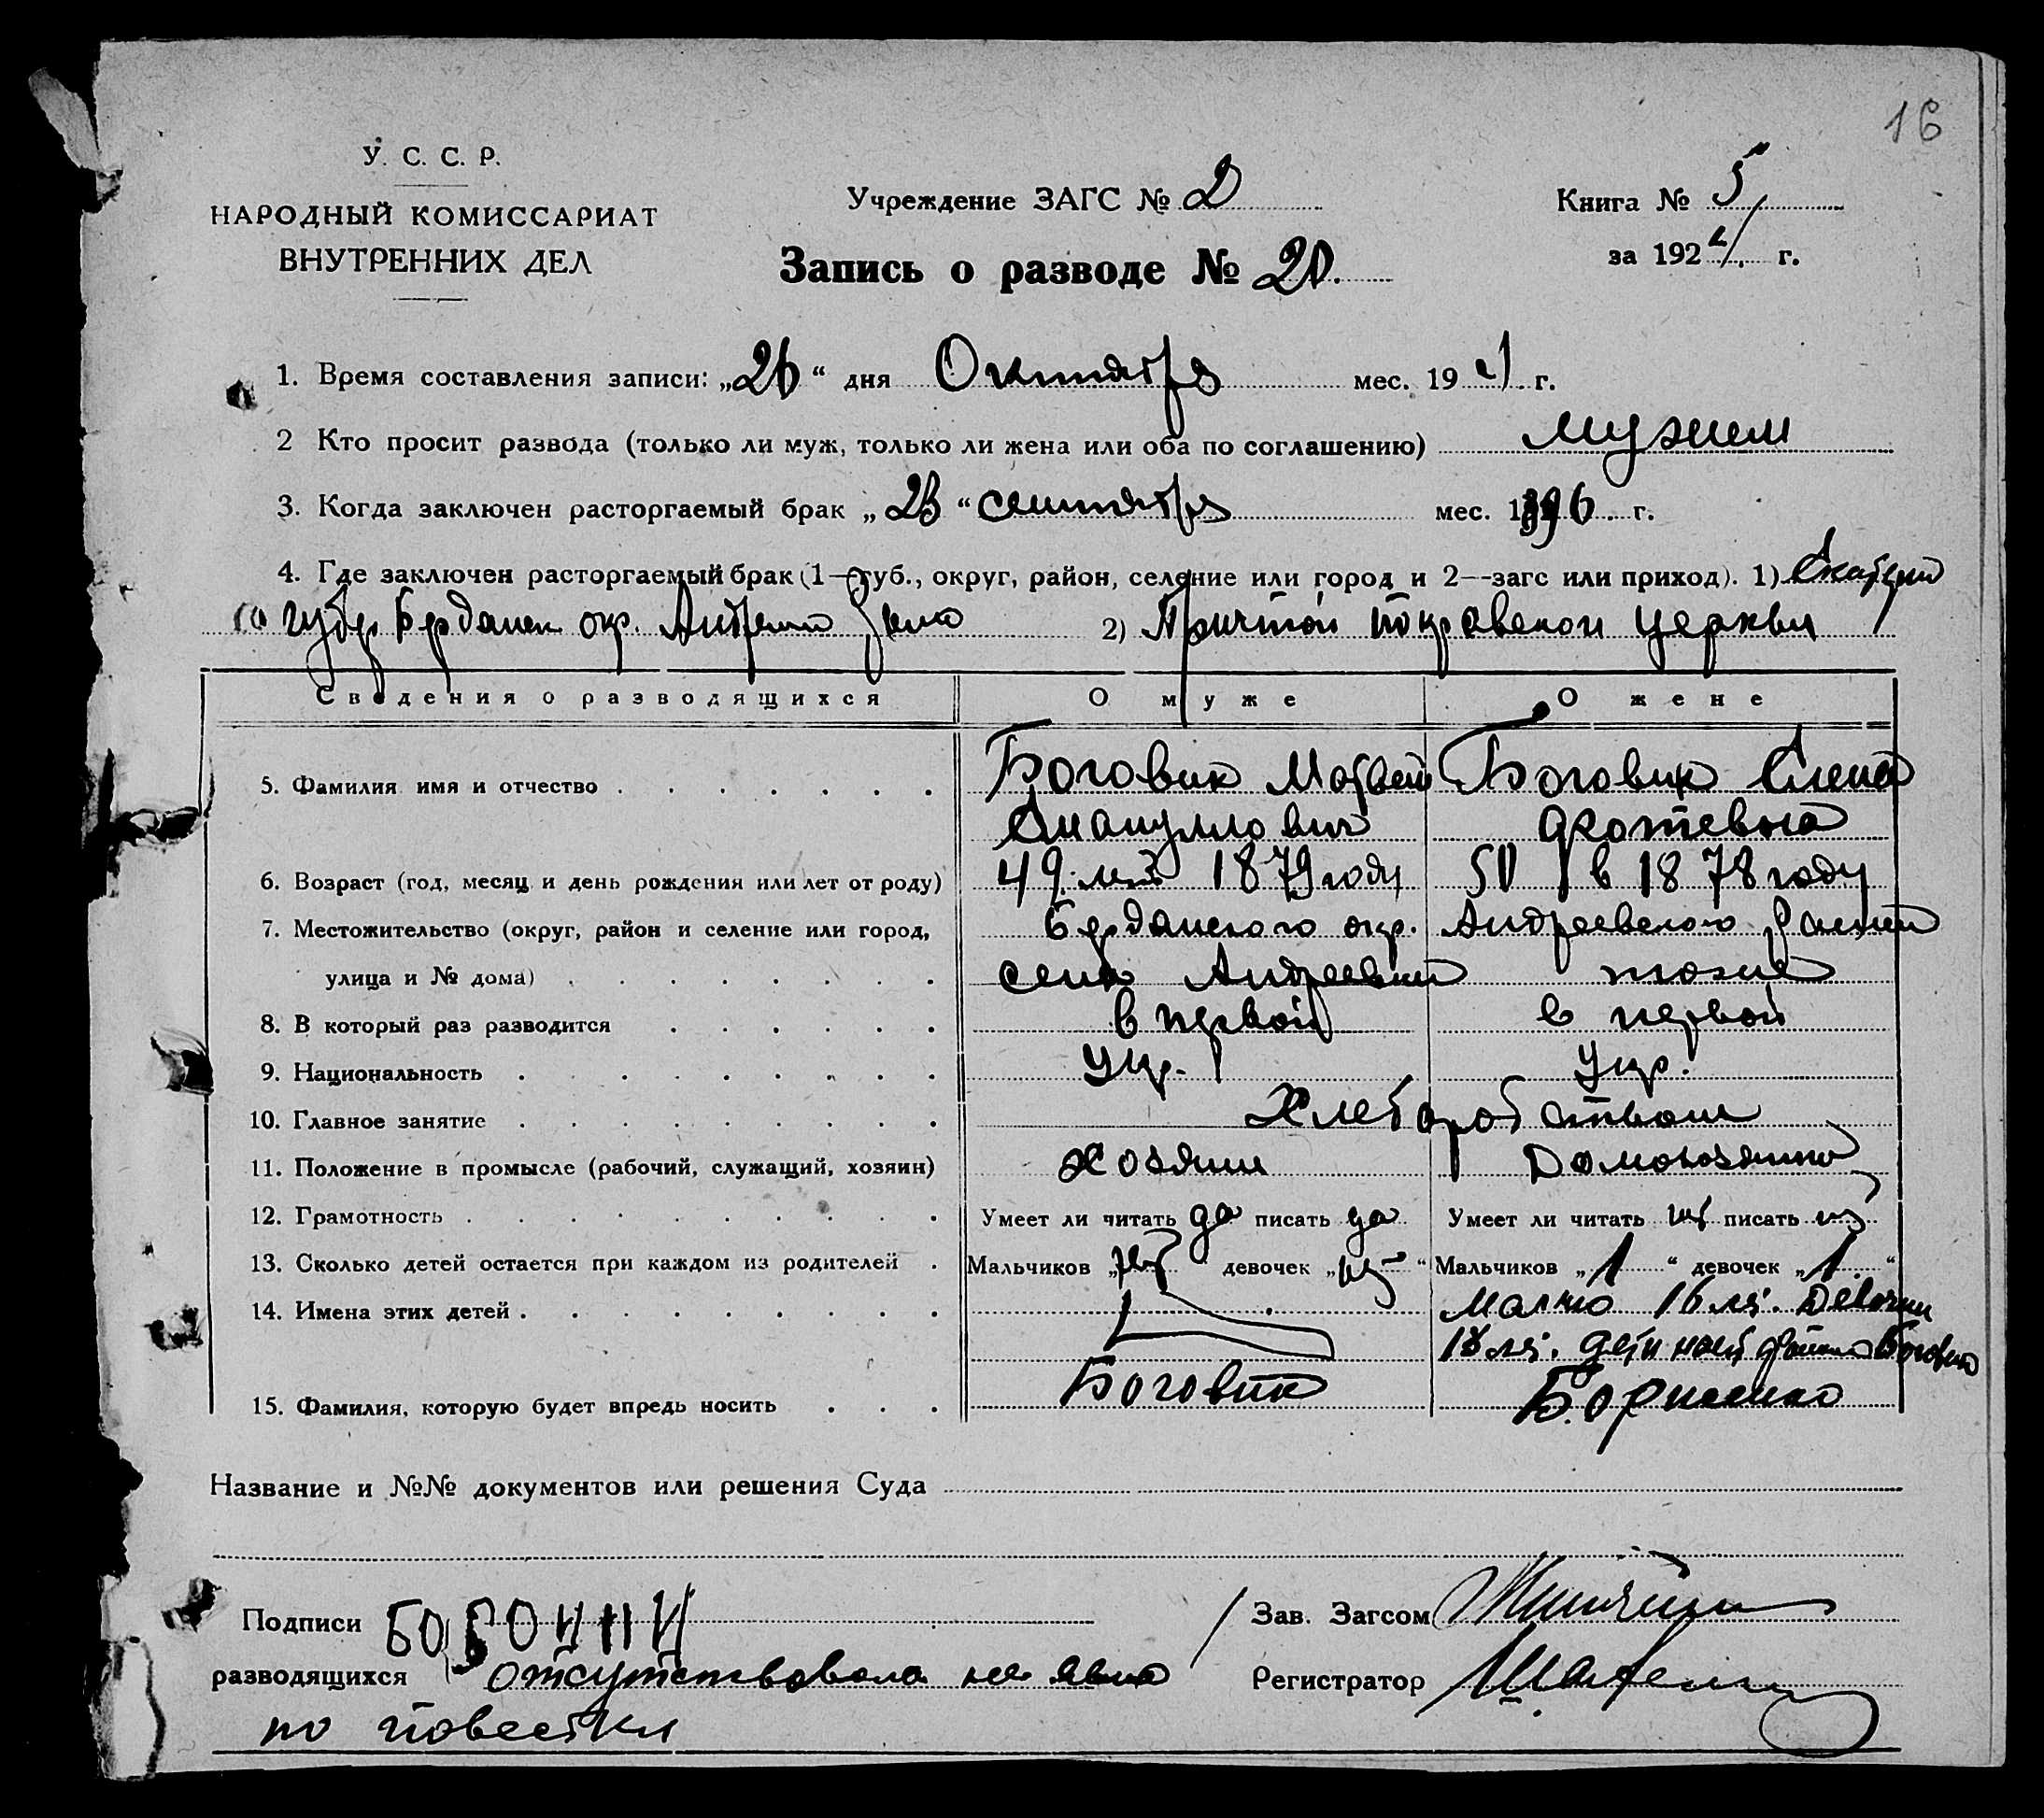 16
У. С. С. Р.
НАРОДНЫЙ КОМИССАРИАТ
ВНУТРЕННИХ ДЕЛ
Учреждение ЗАГС № 2
Книга № 5
за 192 г.
Запись о разводе № 20.
1. Время составления записи: „26“ дня Октября мес. 19 г.
2 Кто просит развода (только ли муж, только ли жена или оба по соглашению) мужем
3. Когда заключен расторгаемый брак „23“ сентября мес. 1896. г.
4. Где заключен расторгаемый брак (1—губ., округ, район, селение или город и 2—загс или приход). 1) Екатерин
губер Бердянск окр. 2) Причтой покровской церквы
Сведения о разводящихся О муже О жене
5. Фамилия имя и отчество Боговик Матвей Боговик Елена
6. Возраст (год, месяц и день рождения или лет от роду) 49. лет 1879 году 50 в 1878 году
7. Местожительство (округ, район и селение или город, Бердянского окр. Андреевского
улица и № дома) села Андреевки тоже
8. В который раз разводится в первой в первой
9. Национальность Укр. Укр.
10. Главное занятие Хлеборобством
11. Положение в промысле (рабочий, служащий, хозяин) хозяин Домохозяика
12. Грамотность Умеет ли читать да писать да Умеет ли читать нет писать нет
13. Сколько детей остается при каждом из родителей Мальчиков „нет“ девочек „нет“ Мальчиков „1“ девочек „1.“
14. Имена этих детей 16 ле. Девочки
18 ле. дети
15. Фамилия, которую будет впредь носить Боговик Борисенко
Название и №№ документов или решения Суда
Подписи Зав. Загсом
разводящихся отсутствовала не явка Регистратор
по повестки